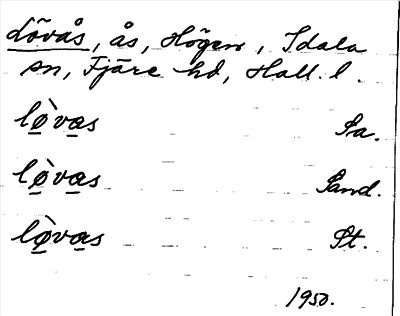 Lövås, ås, Högen, Idala
sn, Fjäre hd, Hall. l.
lø̱̀va̱s Sa.
lø̱̀va̱s Sand.
lø̱̀va̱s St.
1950.